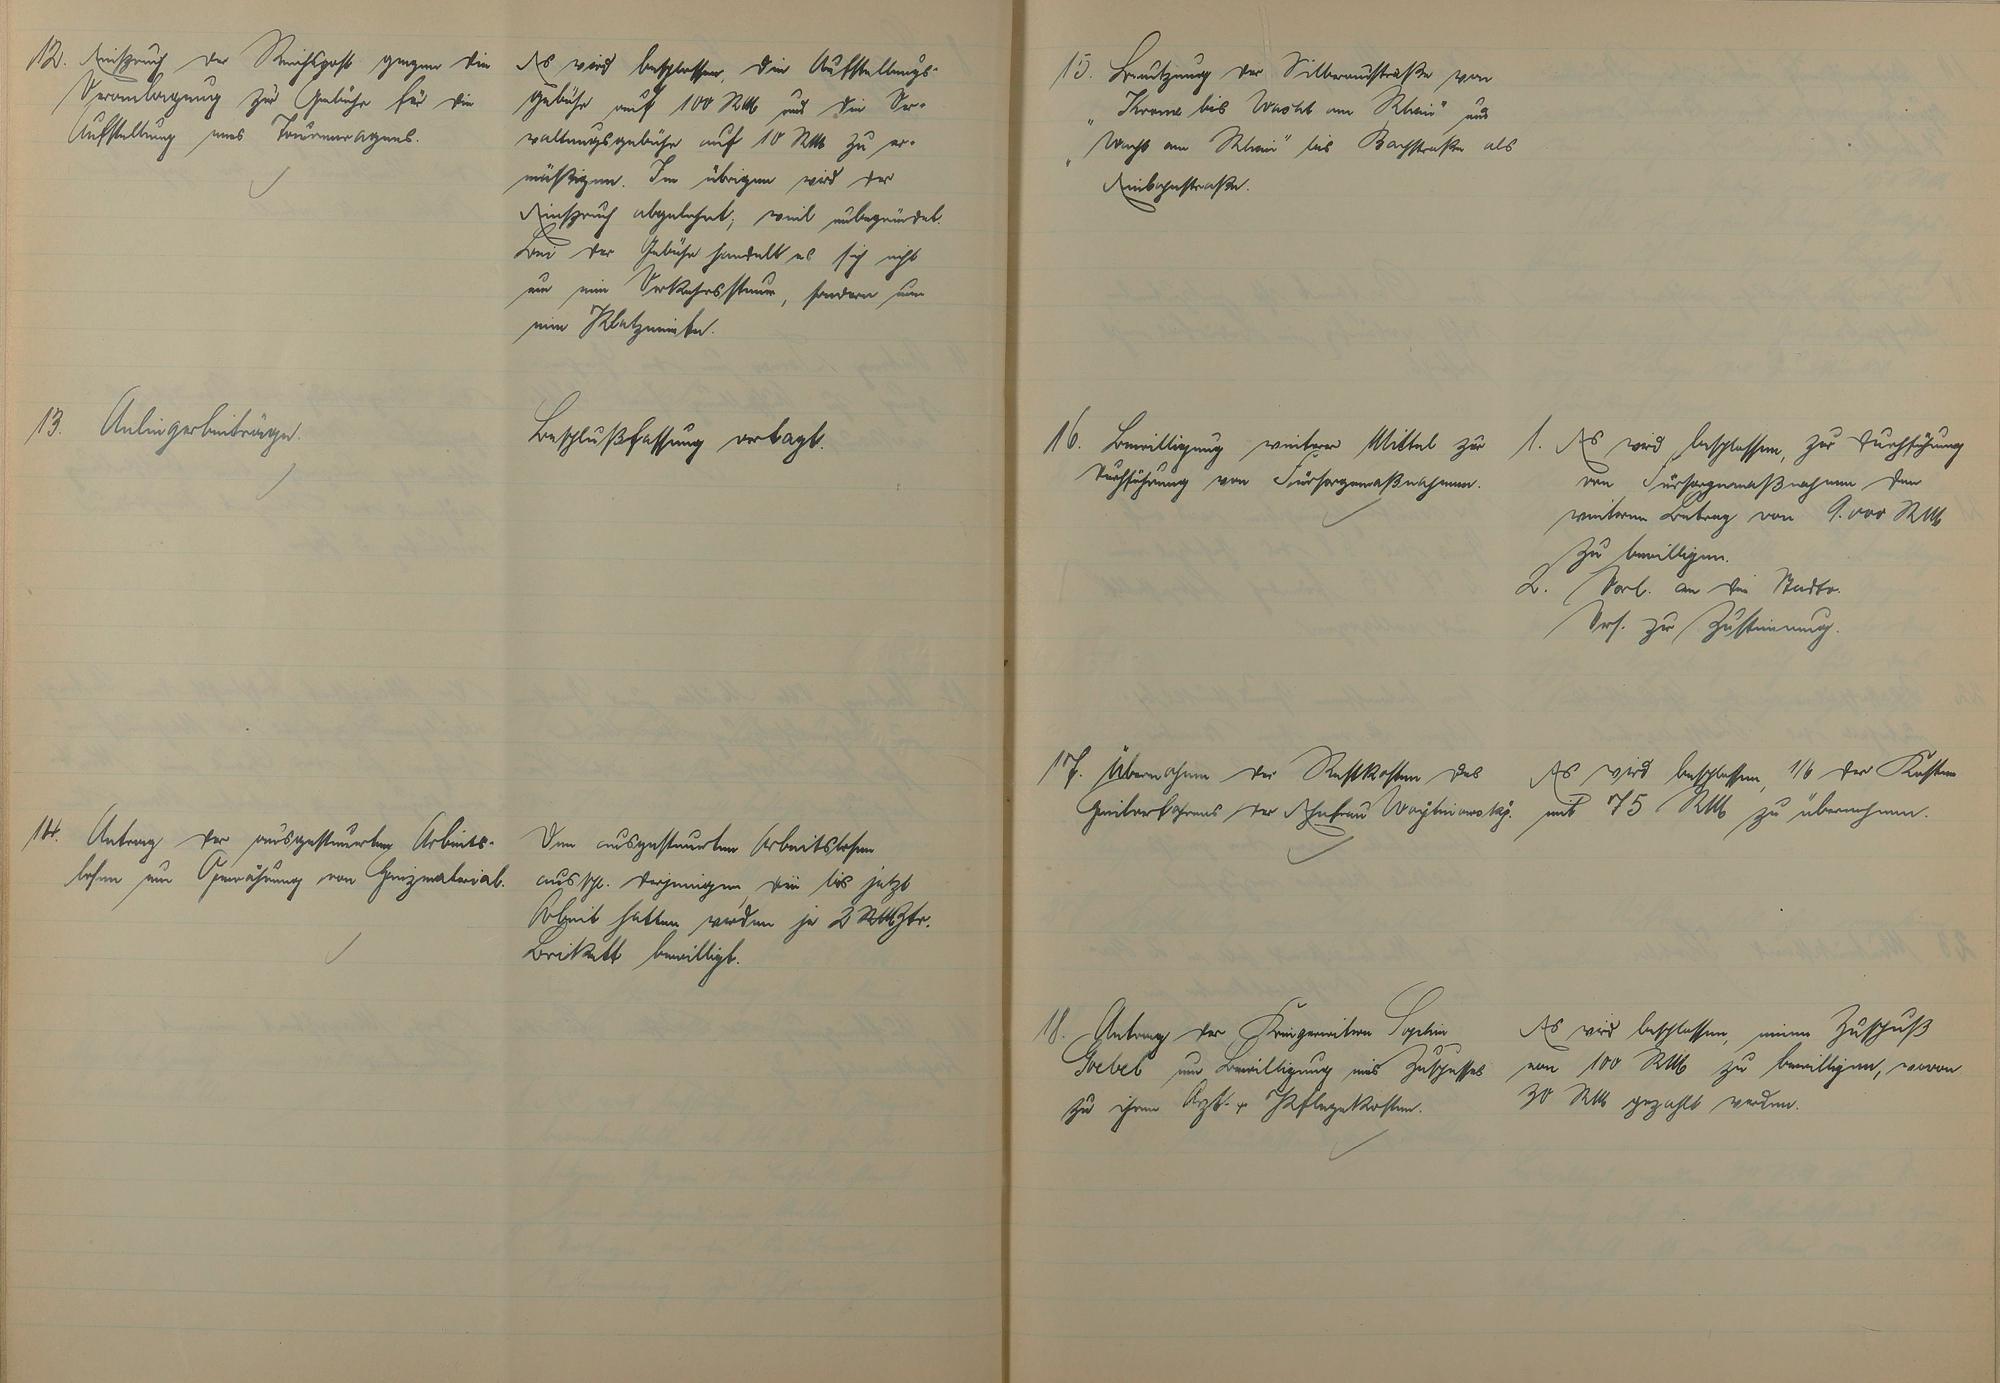 12. Einspruch der Reichspost gegen die
Veranlagung zur Gebühr für die
Aufstellung eines Tourenwagens.
Es wird beschlossen, die Aufstellungs-
gebühr auf 100 RM und die Ver-
waltungsgebühr auf 10 RM zu er-
mäßigen. Im übrigen wird der
Einspruch abgelehnt; weil unbegründet.
Bei der Gebühr handelt es sich nicht
um eine Verkehrssteuer, sondern um
eine Platzmiete.
13. Anliegerbeiträge.
Beschlußfassung vertagt.
14. Antrag der ausgesteuerten Arbeits-
losen um Gewährung von Heizmaterial.
Den ausgesteuerten Arbeitslosen
ausschl. derjenigen, die bis jetzt
Arbeit hatten werden je 2 Ztr.
Brikett bewilligt.
15. Benutzung der Silberaustraße von
"Krone bis Wacht am Rhein" und
"Wacht am Rhein" bis Bachstraße als
Einbahnstraße.
16. Bewilligung weiterer Mittel zur
Durchführung von Fürsorgemaßnahmen.
1. Es wird beschlossen, zur Durchführung
von Fürsorgemaßnahmen den
weiteren Betrag von 9.000 RM
zu bewilligen.
2. Vorl. an die Stadtv.
Vers. zur Zustimmung.
17. Übernahme der Restkosten des
Heilverfahrens der Ehefrau
Es wird beschlossen, 1/6 der Kosten
mit 75 RM zu übernehmen.
18. Antrag der Kriegerwitwe Sophie
Goebel um Bewilligung eines Zuschusses
zu ihren Arzt- u. Pflegekosten.
Es wird beschlossen, einen Zuschuß
von 100 RM zu bewilligen, wovon
30 RM gezahlt werden.